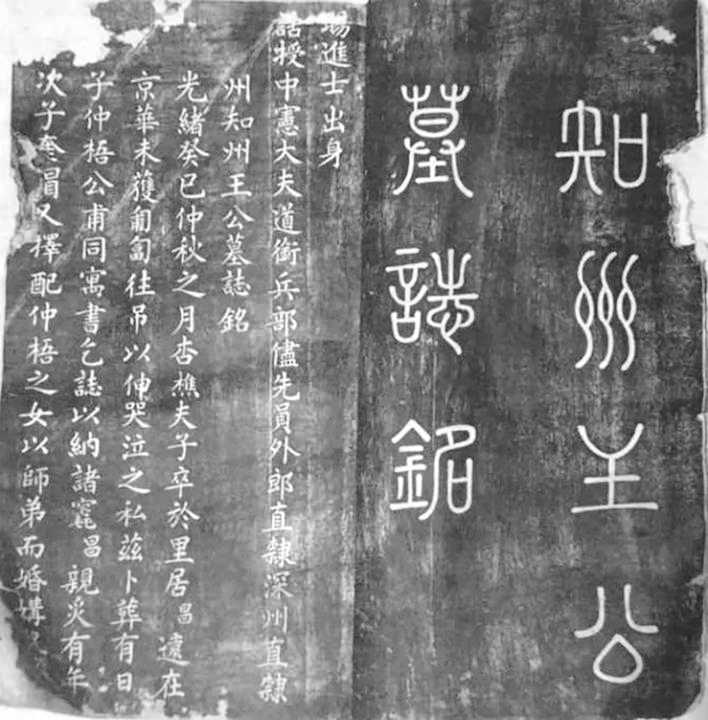 知州王公
墓誌銘
賜進士出身
誥授中憲大夫道銜兵部儘先員外郎直隸深州直隸
州知州王公墓誌銘
光緒癸巳仲秋之月杏樵夫子卒於里居昌遠在
京華未獲匍匐往吊以伸哭泣之私茲卜葬有日
子仲梧公甫同寓書乞誌以納諸窀昌親炙有年
次子奎冒又擇配仲梧之女以師弟而婚媾